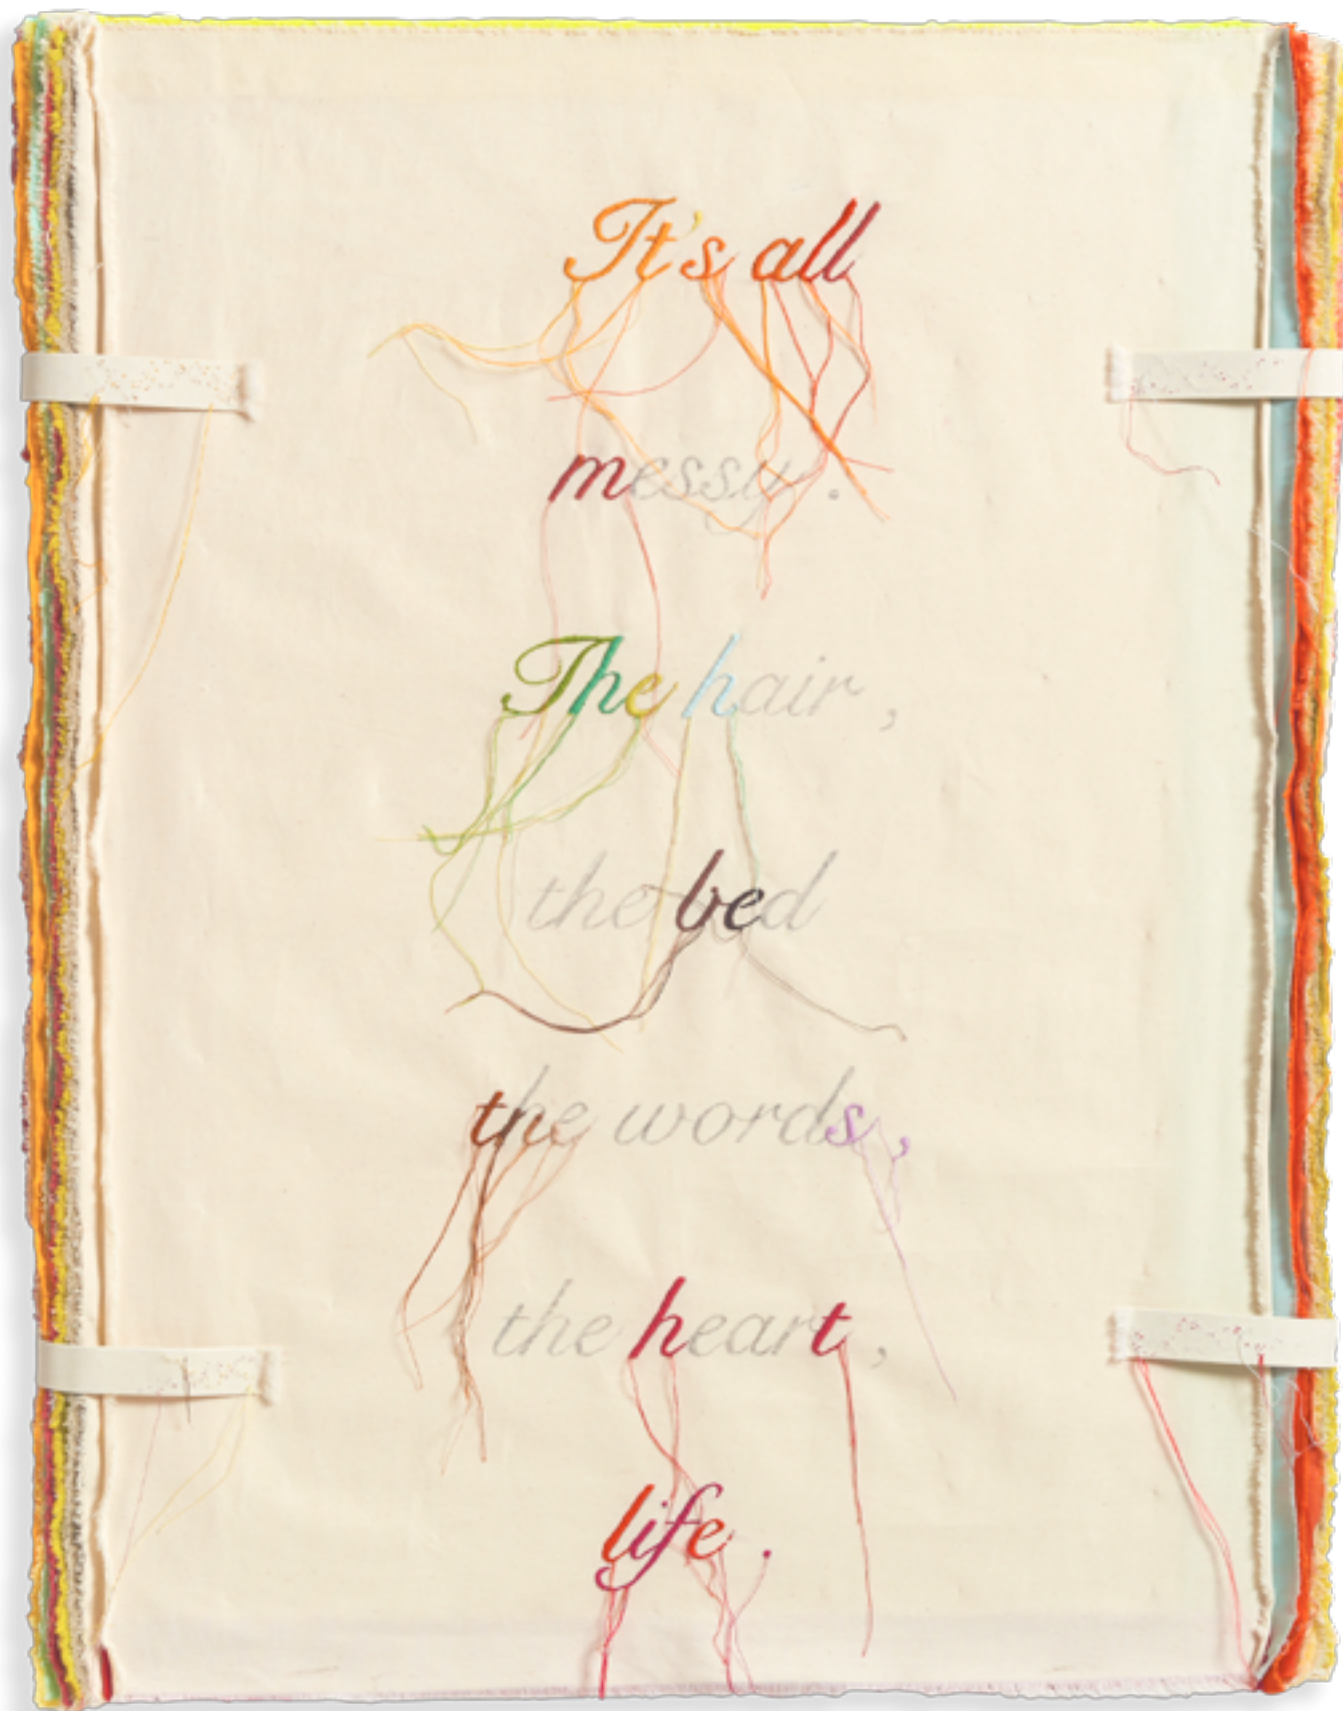 It's all
messy.
The hair,
the bed
the words,
the heart,
life.